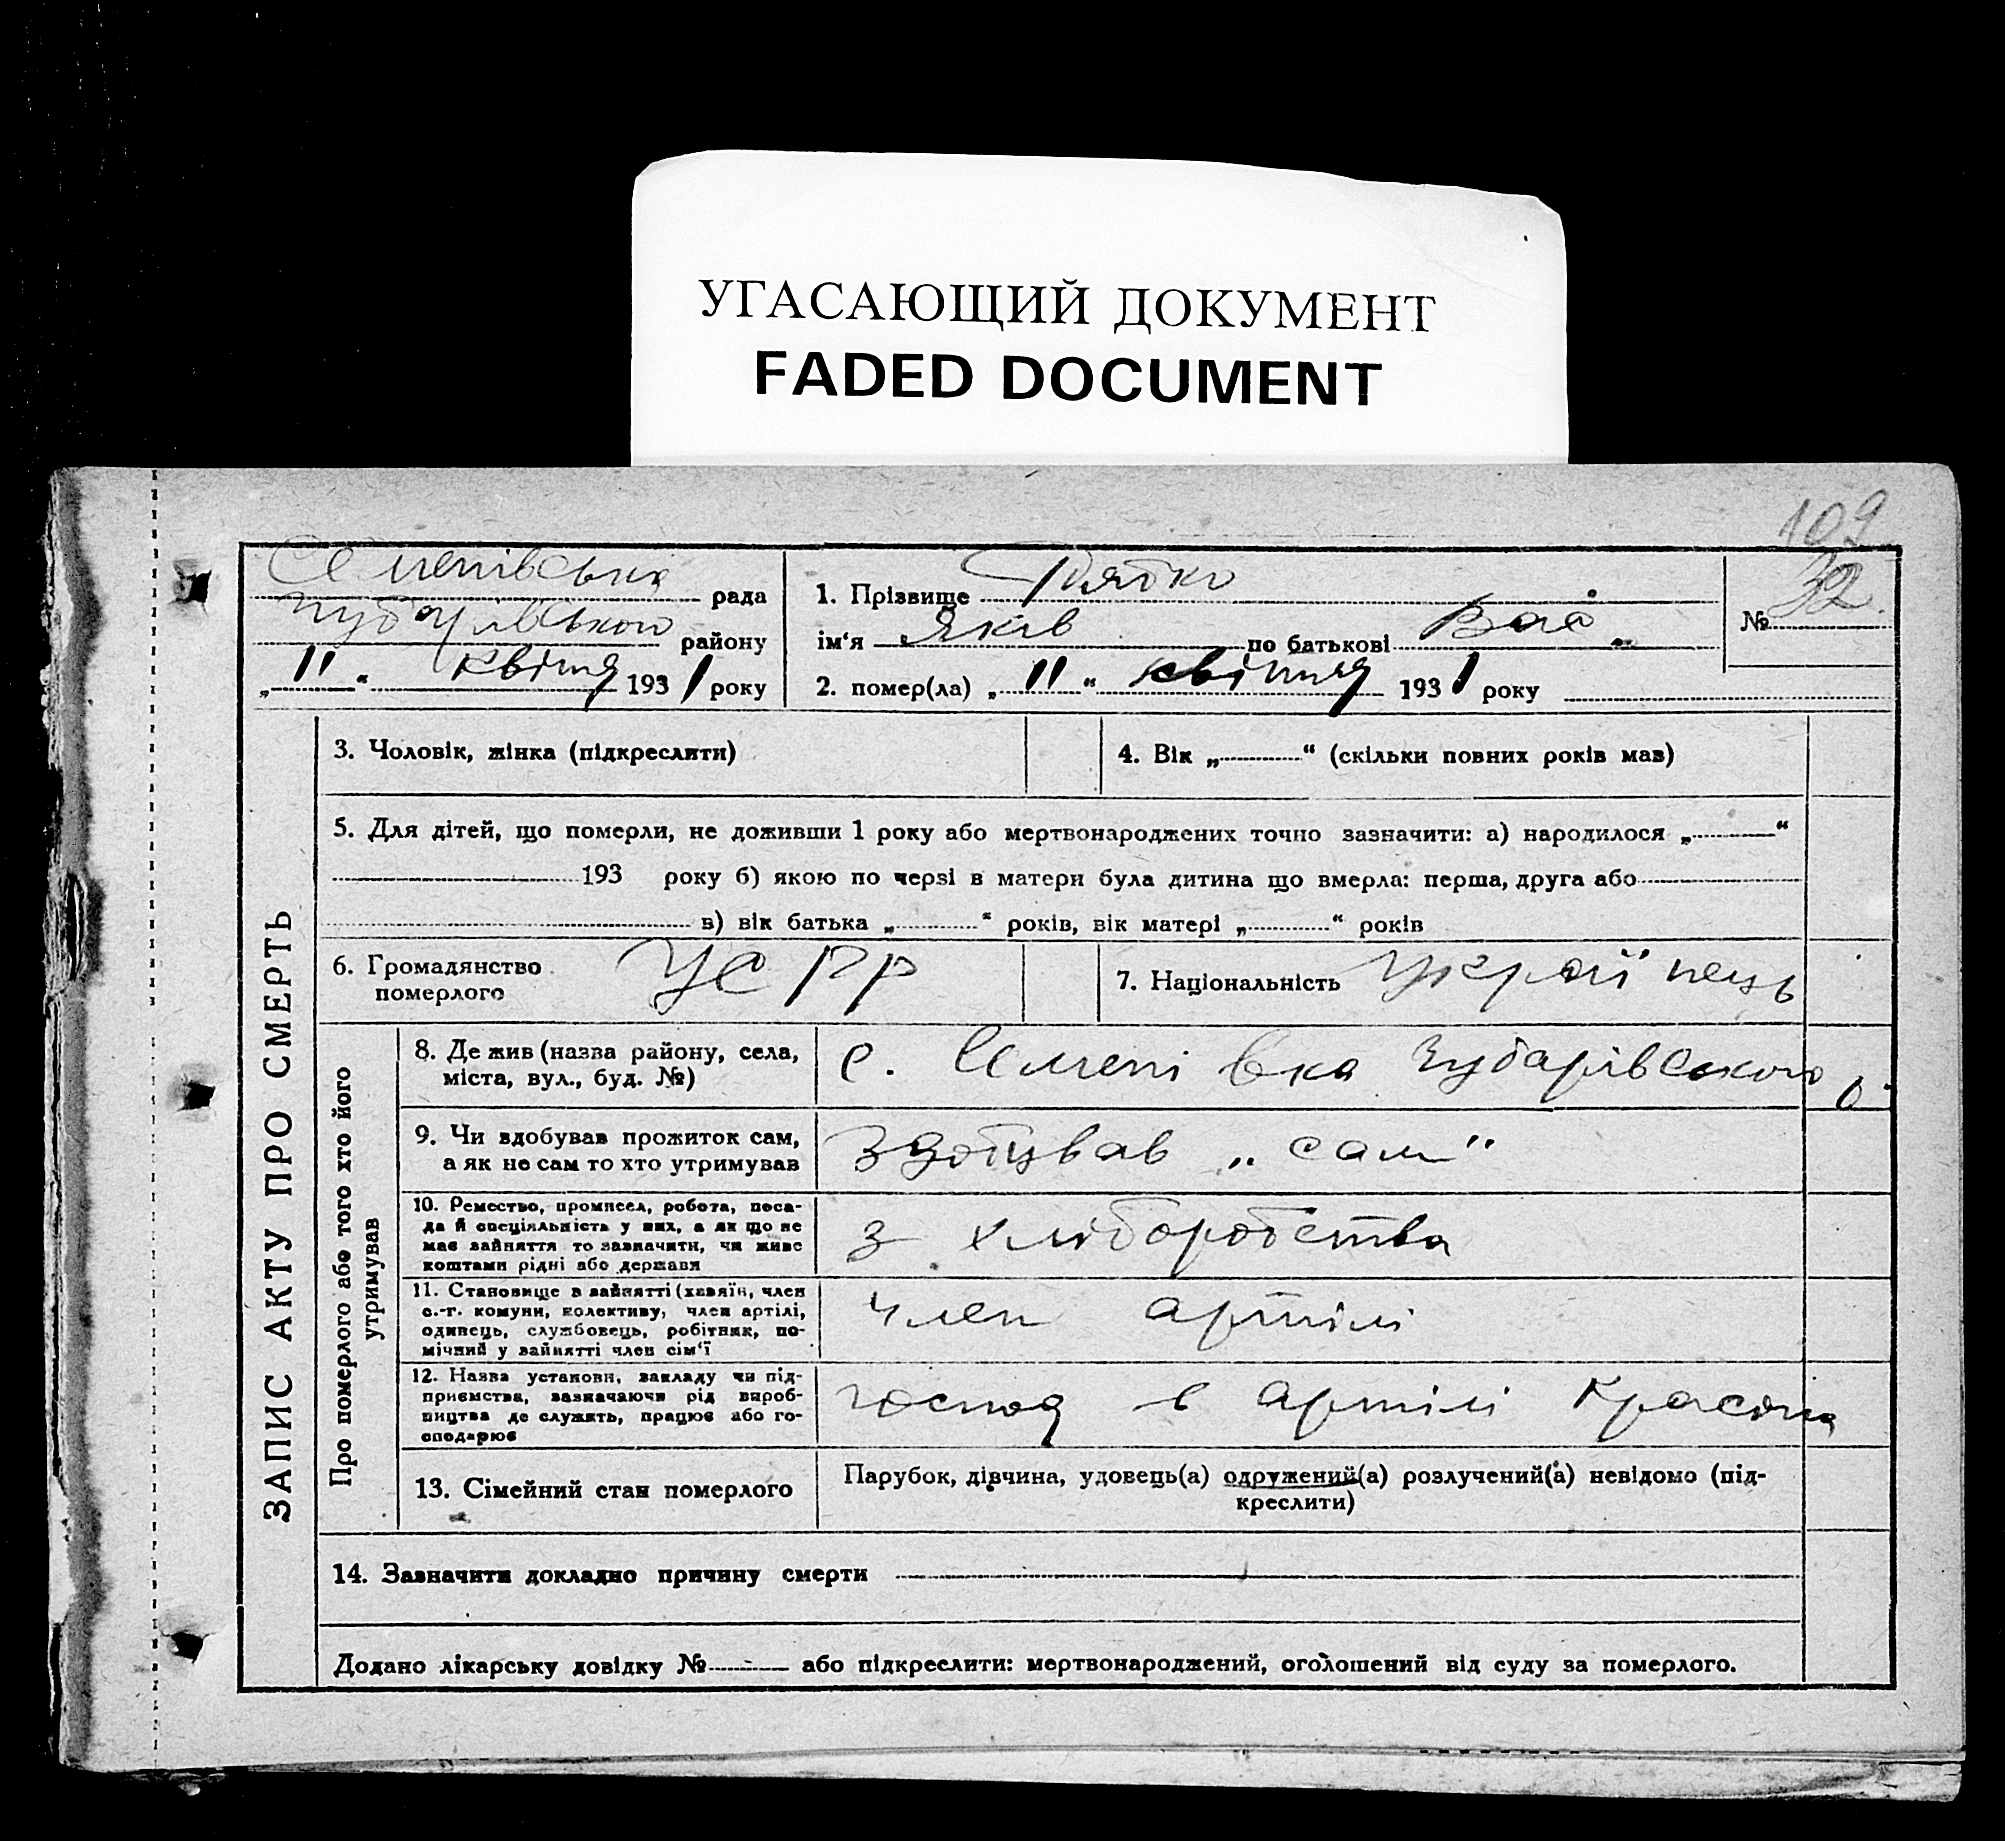 УГАСАЮЩИЙ ДОКУМЕНТ
FADED DOCUMENT
109
Семенівська рада
Чубарівського району
„ 11 “ квітня 193 1 року
1. Прізвище
ім‘я Яків по батькові Вас
2. помер(ла) „ 11 “ квітня 193 1 року
№ 32
ЗАПИС АКТУ ПРО СМЕРТЬ
3. Чоловік, жінка (підкреслити)
4. Вік „ “ (скільки повних років мав)
5. Для дітей, що померли, не доживши 1 року або мертвонароджених точно зазначити: а) народилося „ “
193 року б) якою по черзі в матери була дитина що вмерла: перша, друга або
в) вік батька „ “ років, вік матері „ “ років
6. Громадянство
померлого
УСРР
7. Національність Українець
Про померлого або того хто його
утримував
8. Де жив (назва району, села,
міста, вул., буд. №)
с. Семенівка Чубарівського р
9. Чи здобував прожиток сам,
а як не сам то хто утримував
здобував „сам“
10. Ремество, промисел, робота, поса-
да й спеціяльність у них, а як що не
має зайняття то зазначити, чи живе
коштами рідні або держави
з хліборобства
11. Становище в зайнятті (хазяїн, член
с.-г. комуни, колективу, член артілі,
одинець, службовець, робітник, по-
мічний у зайнятті член сім‘ї
член артілі
12. Назва установи, закладу чи під-
приємства, зазначаючи рід вироб-
ництва де служить, працює або го-
сподарює
в артілі
13. Сімейний стан померлого
Парубок, дівчина, удовець(а) одружений(а) розлучений(а) невідомо (під-
креслити)
14. Зазначити докладно причину смерти
Додано лікарську довідку № або підкреслити: мертвонароджений, оголошений від суду за померлого.